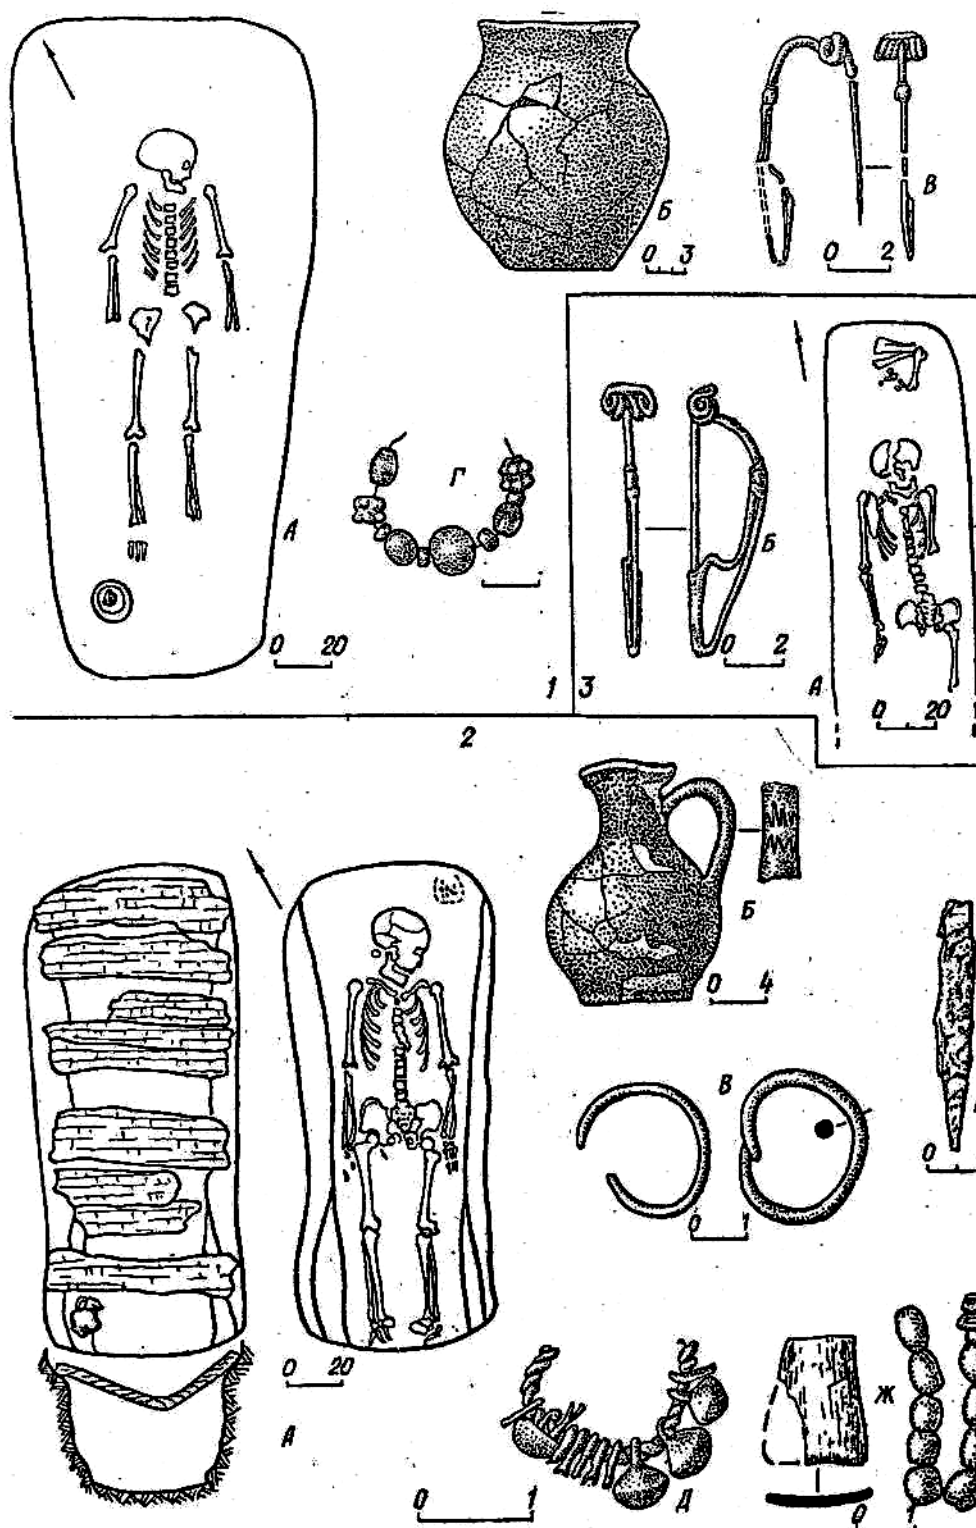 Б
0 3
В
0 2
Г
А
0 20
Б
0 2
А
0 20
1 3
2
Б
0 4
В
0 1
0
0 20
А
0 1
Д
Ж
0 1